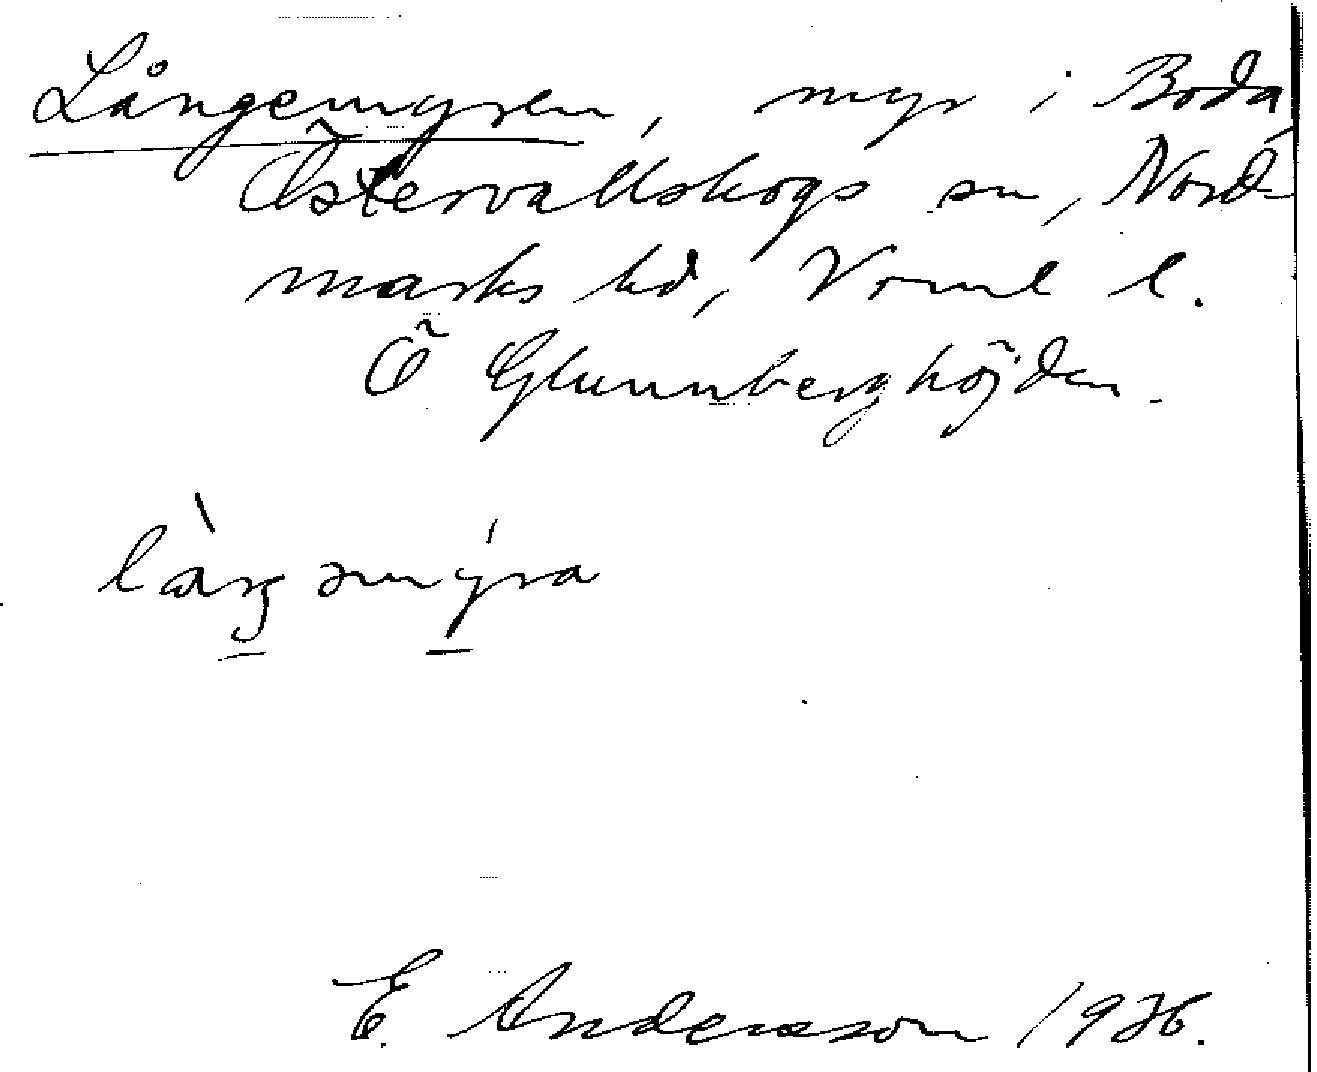 Långemyren, myr i Boda
Östervallskogs sn, Nord-
marks hd, Vrml l.
Ö Glunnberghöjden.
làŋ əmýra
E. Andersson 1926.